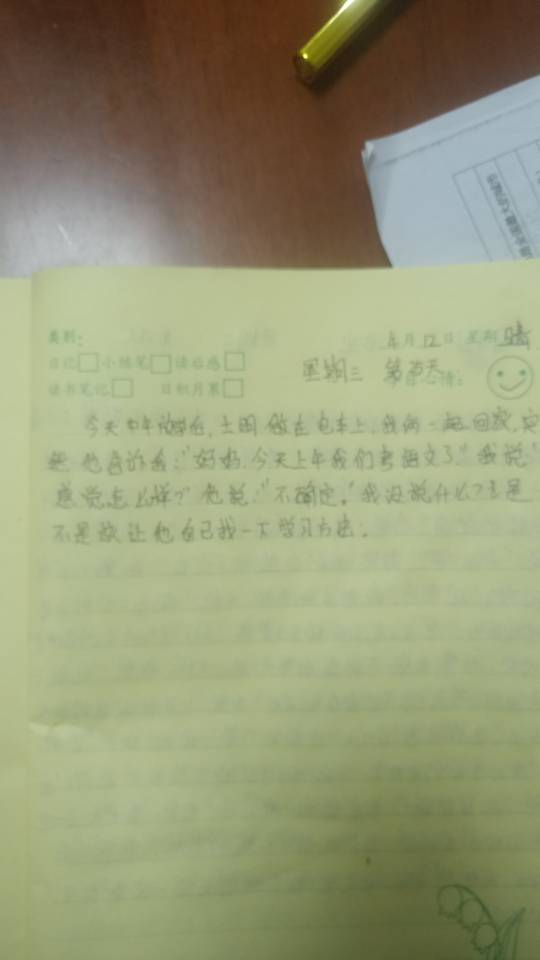 类别： 月12日 星期 晴
日记 小练笔 读后感 星期三 第 天
读书笔记 日积月累 今日心情：
今天中午放学后，土明 做在电车上，我俩一起回家，
他告诉我："妈妈，今天上午我们考语文了"我说"
感觉怎么样？"他说："不确定。"我没说什么？
不是该让他自己找一下学习方法。